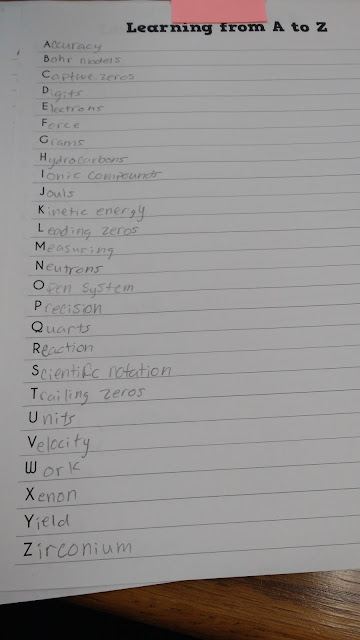 Learning from A to Z
Accuracy
Bohr models
Captive zeros
Digits
Electrons
Force
Grams
Hydrocarbons
Ionic compounds
Jouls
Kinetic energy
Leading zeros
Measuring
Neutrons
Open system
Precision
Quarts
Reaction
Scientific notation
Trailing zeros
Units
Velocity
Work
Xenon
Yield
Zirconium